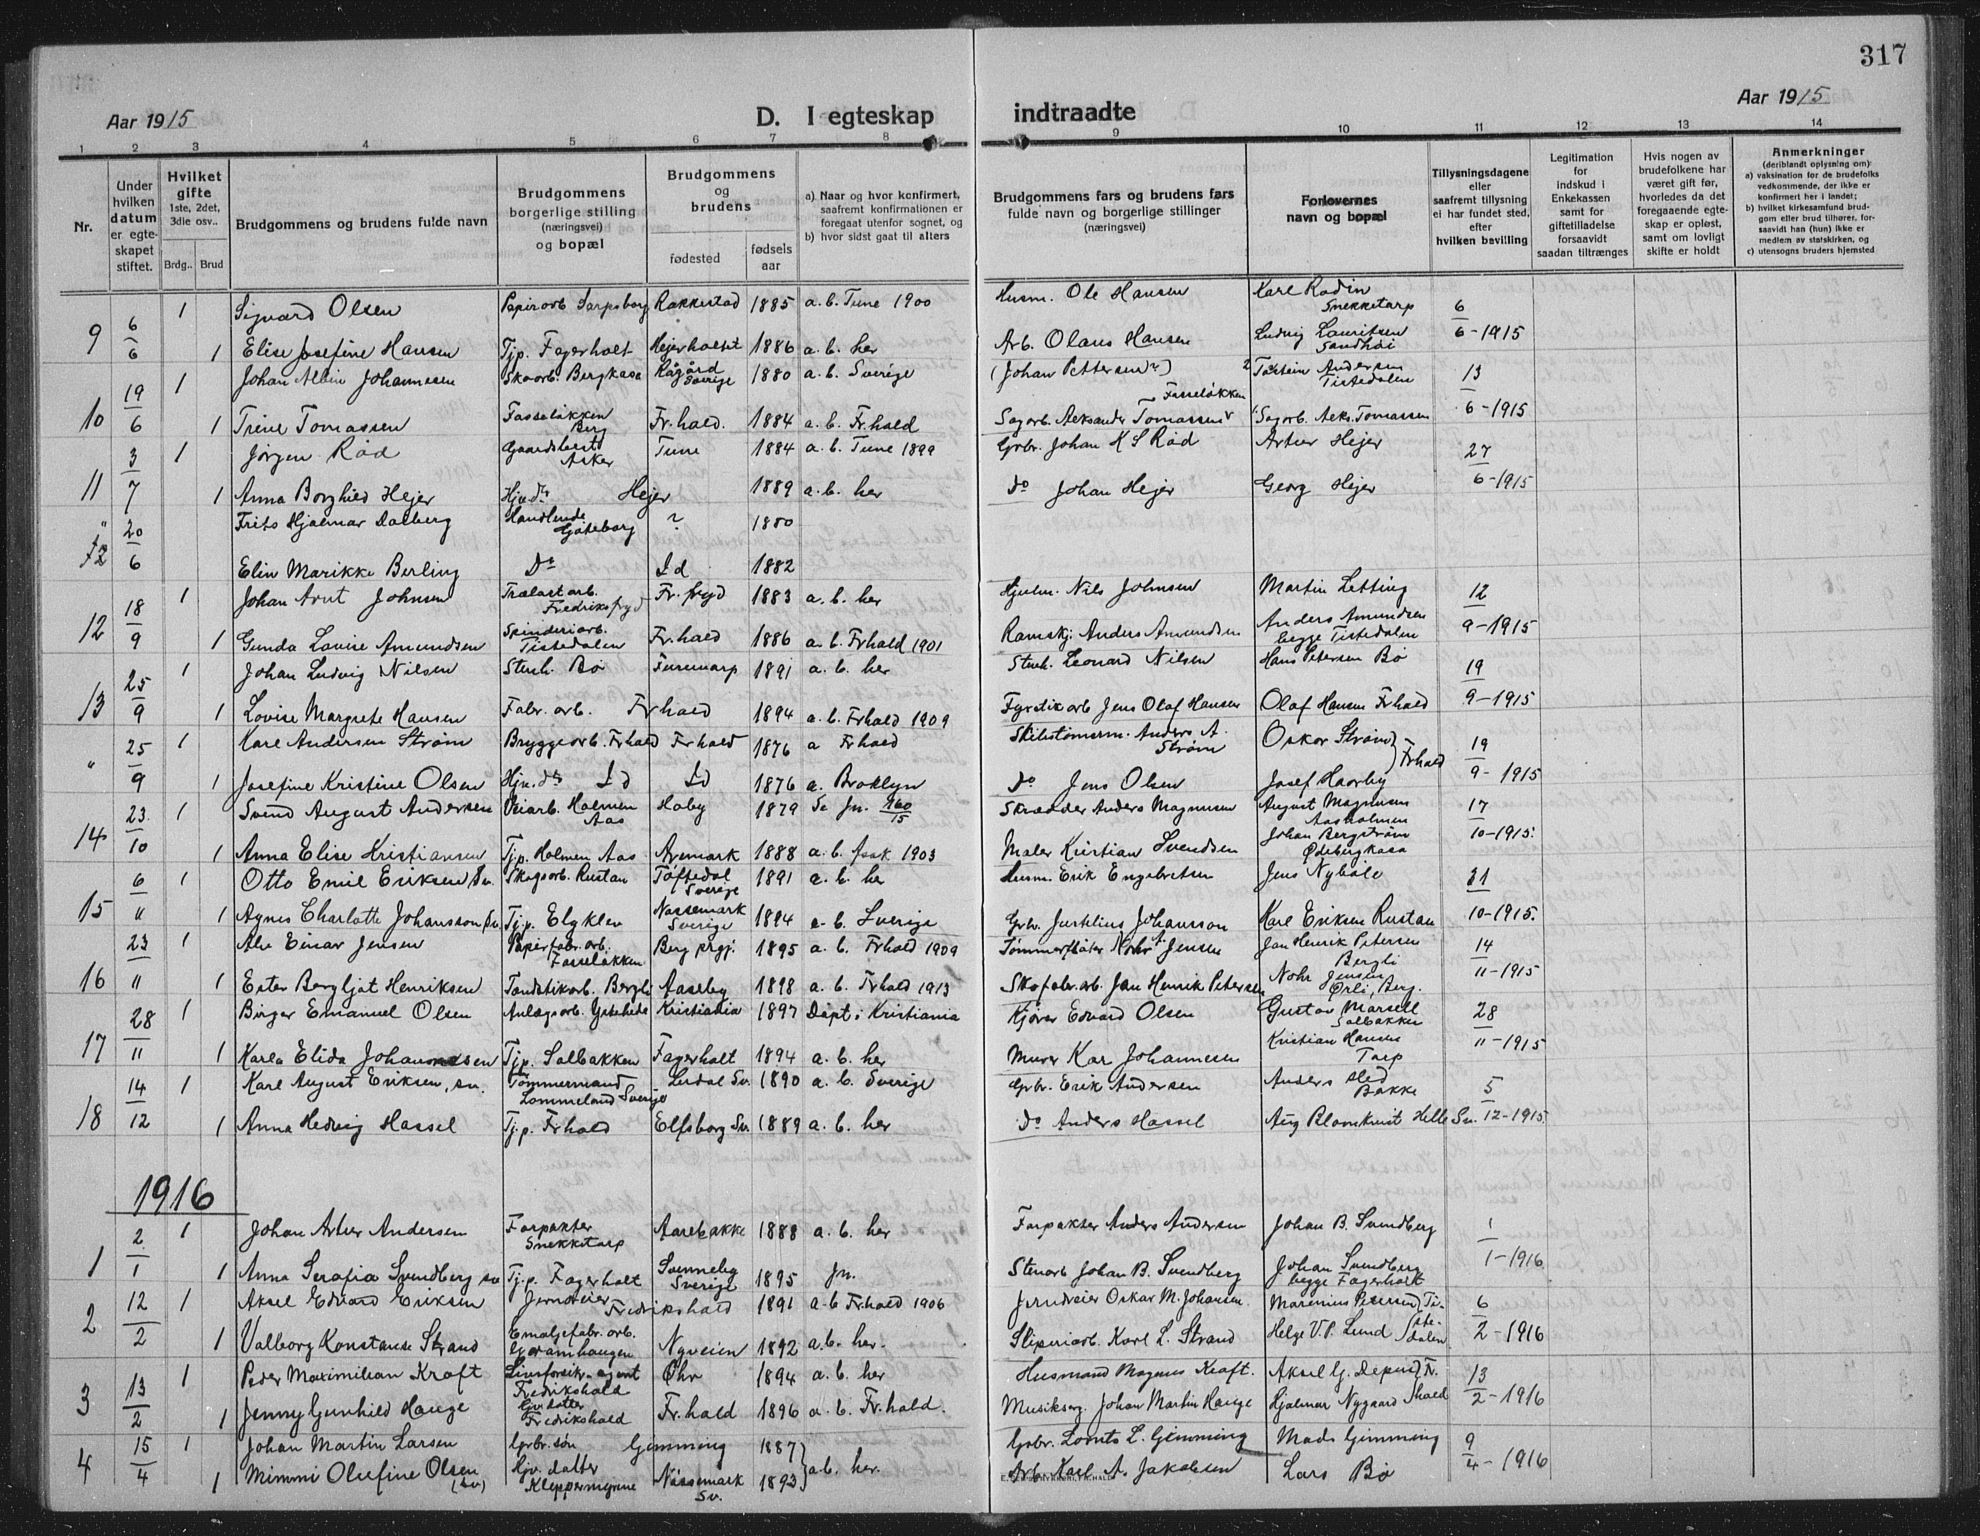 317
Aar 1915
D. I egteskap indtraadte
Aar 1915
1 2 3 4 5 6 7 8 9 10 11 12 13 14
Nr.
Under hvilken datum er egteskapet stiftet.
Hvilket gifte
1ste, 2det, 3die osv..
Brdg.. Brud
Brudgommens og brudens fulde navn
Brudgommens borgerlige stilling (næringsvei) og bopæl
Brudgommens og brudens
fødested
fødselsaar
a) Naar og hvor konfirmert, saafremt konfirmationen er foregaat utenfor sognet, og
b) hvor sidst gaat til alters
Brudgommens fars og brudens fars fulde navn og borgerlige stillinger (næringsvei)
Forlovernes navn og bopæl
Tillysningsdagene eller saafremt tillysning ei har fundet sted, efter hvilken bevilling
Legitimation for indskud i Enkekassen samt for giftetilladelse forsaavidt saadan tiltrænges
Hvis nogen av brudefolkene har været gift før, hvorledes da det foregaaende egteskap er opløst, samt om lovligt skifte er holdt
Anmerkninger
(deriblandt oplysning om):
a) vaksination for de brudefolks vedkommende, der ikke er konfirmert her i landet;
b) hvilket kirkesamfund brudgom eller brud tilhører, forsaavidt han (hun) ikke er medlem av statskirken, og
c) utensogns bruders hjemsted
9 6/6 1 Sigvard Olsen Papirarb. Sarpsborg Rakkestad 1885 a. b. Tune 1900 Husm. Ole Hansen Karl Rodin Snekketarp 6
1 Elise Josefine Hansen Tjp. Fagerholt Hejerholtet 1886 a. b. her Arb. Olaus Hansen Ludvig Lauritsen Sandhøi 6-1915
10 19/6 1 Johan Albin Johannesen Skoarb. Bergkasa Sverige 1880 a. b. Sverige (Johan Pettersen) Andersen Tistedalen 13
1 Trine Tomassen Fasseløkken Berg Fr.hald. 1884 a. b. Fr.hald Sagarb. Aeksander Tomassen Fasseløkken Sagarb. Aeks. Tomassen 6-1915
11 3/7 1 Jørgen Rød Asker Tune 1884 a. b. Tune 1899 Grbr. Johan K S Rød Artur Hejer 27
1 Anna Borghild Hejer Hjv. dtr Hejer 1889 a. b. her do Johan Hejer Georg Hejer 6-1915
" 20/6 Frits Hjalmar Dalberg Handlende Göteborg ? 1880
Elin Marikke Berling Do Id 1882
12 18/9 1 Johan Arnt Johnsen Trælastarb. Fredriksfryd Fr. fryd 1883 a. b. her Nils Johnsen Martin Letting 12
1 Gunda Lovise Amundsen Spinderiarb. Tistedalen Fr.hald 1886 a. b. Frhald 1901 Anders Amundsen Anders Amundsen begge Tistedalen 9-1915
13 25/9 1 Johan Ludvig Nilsen Stenh. Bø Furumarp 1891 a. b. her Stenh. Leonard Nilsen Hans Petersen Bø 19
1 Lovise Margrete Hansen Fabr. arb. Frhald 1894 a. b. Frhald 1909 Fyrstikarb Jens Olaf Hansen Olaf Hansen Frhald 9-1915
" 25/9 1 Karl Andersen Strøm Bryggearb. Frhald Frhald 1876 a Frhald Skibstømerm. Anders A. Strøm Oskar Strøm Frhald 19
1 Josefine Kristine Olsen Hjv. dtr Id Id 1876 a. Broklyn do Jens Olsen Josef Haarby 9-1915
14 23/10 1 Svend August Andersen Veiarb. Holmen Aas Haby 1879 Se jn. 160/15 Skrædder Anders Magnusen August Magnusen Aasholmen 17
1 Anna Elise Kristiansen Tjp. Holmen Aas Aremark 1888 a. b. 1903 Maler Kristian Svendsen Johan Bergstrøm Ødebergkasa 10-1915.
15 6/11 1 Otto Emil Eriksen Sv. Skogsarb. Rustan Töftedal Sverige 1891 a. b. her Husm. Erik Engebretsen Jens Nybøle 31
1 Agnes Charlotte Johansson Sv. Tjp. Elgklev Nössemark Sverige 1894 a. b. Sverige Grbr. Justelius Johansson Karl Eriksen Rustan 10-1915.
16 23/11 1 Alv Einar Jensen Papirfabr. arb. Fasseløkken Berg prgj. 1895 a. b. Frhald 1909 Tømmerfløter Nohr A. Jensen Jan Henrik Petersen Bergli 14
1 Ester Bergljot Henriksen Tændstikarb. Bergli Aaseby 1898 a. b. Frhald 1913 Skofabr. arb. Jan Henrik Petersen Nohr Jensen Ørli, Berg. 11-1915
17 28/11 1 Birger Emanuel Olsen Anlægsarb. Kristiania 1897 Døpt i Kristiania Kjører Edvard Olsen Gustav Marsell Solbakken 28
1 Karla Elida Johannesen Tjp. Solbakken Fagerholt 1894 a. b. her Murer Kar Johannesen Kristian Hansen Tarp 11-1915
18 14/12 1 Karl August Eriksen, sv. Tømmermand Lommeland Sverige Lurdal Sv. 1890 a. b. Sverige Grbr. Erik Andersen Anders Hed Bakke 5
1 Anna Hedvig Hassel Tj.p. Frhald Elfsborg Sv. 1889 a. b. her do Anders Hassel Aug Blomkvist Helle Sv. 12-1915.
1916
1 2/1 1 Johan Artur Andersen Forpakter Snekketarp Aarebakke 1888 a. b. her Forpakter Anders Andersen Johan B. Svendberg 1
1 Anna Serafia Svendberg sv Tj.p. Fagerholt Svenneby Sverige 1895 jn. Stenarb Johan B. Svendberg Johan Svendberg begge Fagerholt 1-1916
2 12/2 1 Aksel Edvard Eriksen Jerndreier Fredrikshald 1891 a. b Fr.hald 1906 Jerndreier Oskar M. Johansen. Marenius Petersen Tistedalen 6
1 Valborg Konstanse Strand Emaljefabr. arb. Goramhaugen Nyveien 1892 a. b. her. Sliperiarb. Karl L. Strand Helge V. P. Lund 2-1916
3 13/2 1 Peder Maximilian Kraft Livsforsikr. agent Fredrikshald Øhr 1894 a. b. her Husmand Magnus Kraft. Aksel G. Fr.hald 13
1 Jenny Gunhild Hauge Gv. datter Fredrikshald Fr.hald 1896 a. b. Fr.hald. Musikserg. Johan Martin Hauge Hjalmar Nygaard 2-1916
4 15/4 1 Johan Martin Larsen Grbr. søn Gimming 1887 Grbr. L. Gimming Mads Gimming 9
1 Mimmi Olufine Olsen (sv) Hjv. datter Kleppermyrene Nössemark Sv. 1893 a. b. her. Arb. Karl A. Jakobsen Lars Bø 4-1916